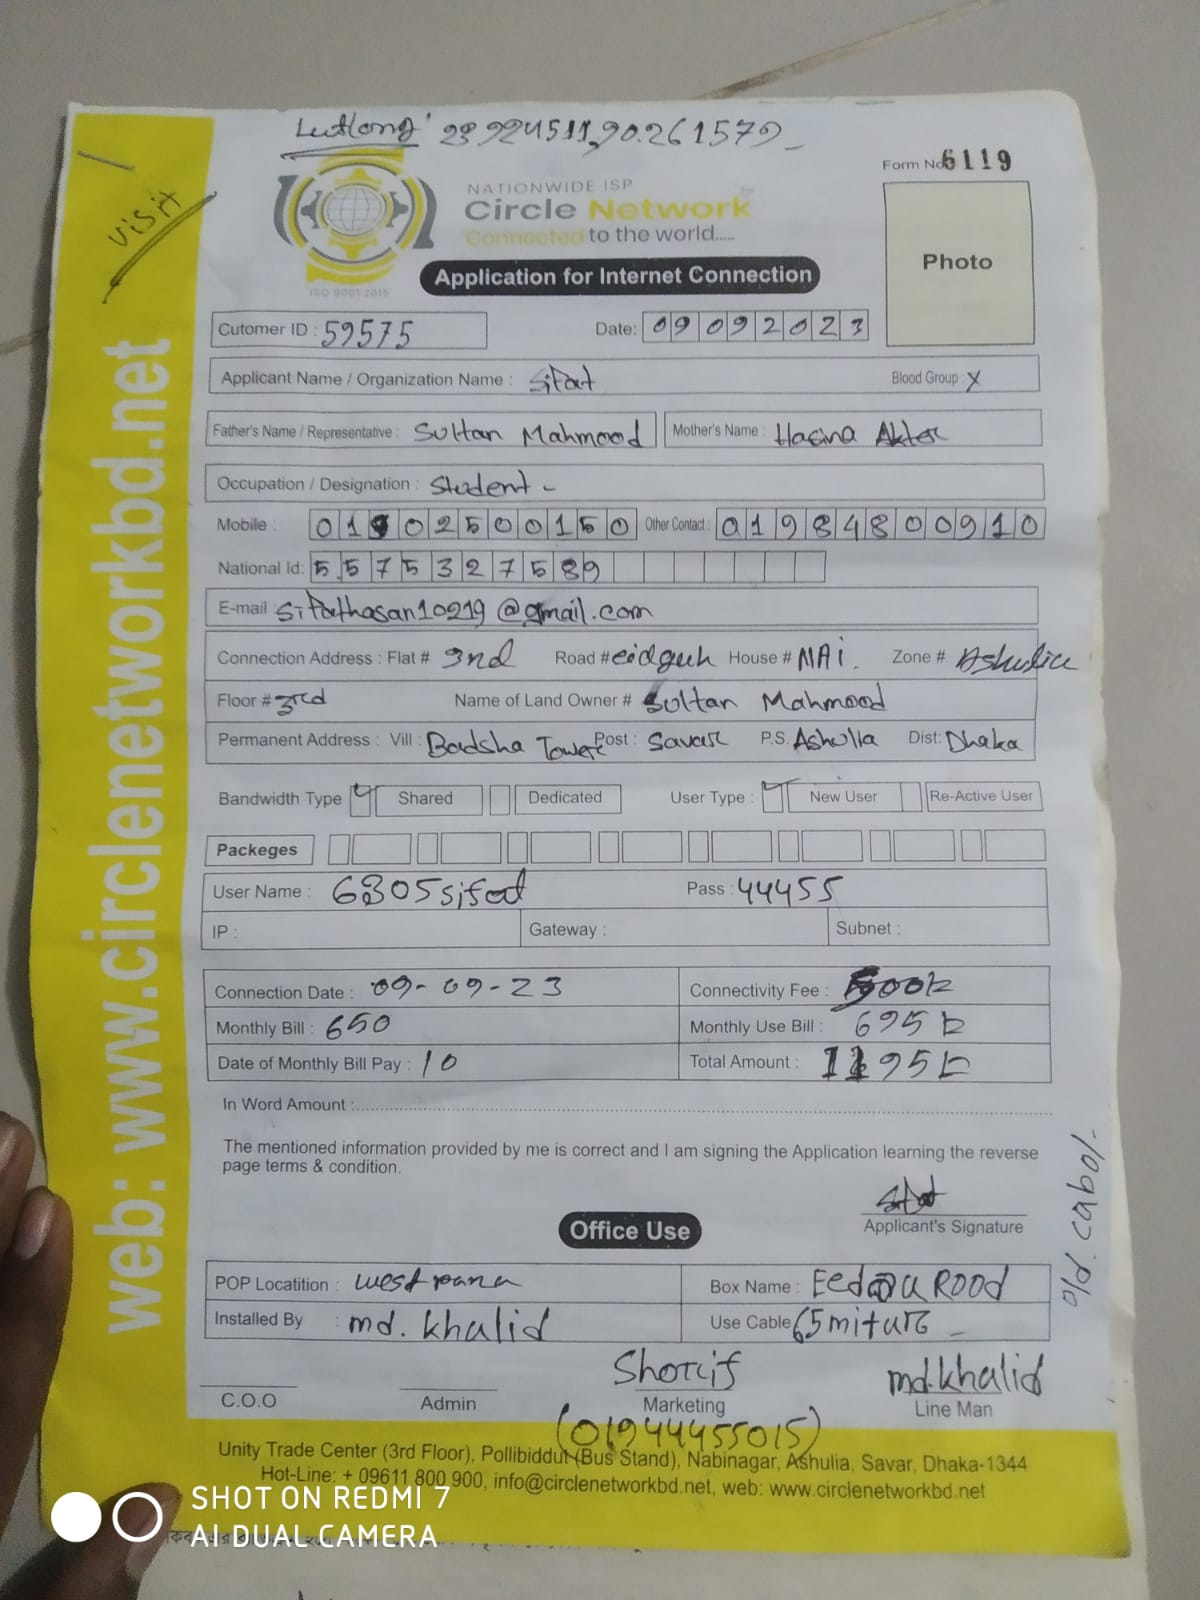 Latlong' 23.924511,90.261579
Form No 6119
visit
NATIONWIDE ISP
Circle Network
Connected to the world.....
ISO 9001:2015
Application for Internet Connection
Photo
Cutomer ID : 59575 Date: 09 09 2023
Applicant Name / Organization Name : Sifat Blood Group : X
Father's Name / Representative : Sultan Mahmood Mother's Name : Hasina Akter
Occupation / Designation : Student -
Mobile : 01902500150 Other Contact : 01984800910
National Id: 5575327589
E-mail sifathasan10219@gmail.com
Connection Address : Flat # 3nd Road # eidgah House # NAi. Zone # Ashulia
Floor # 3rd Name of Land Owner # Sultan Mahmood
Permanent Address : Vill : Badsha Tower Post : Savar P.S. Ashulia Dist: Dhaka
Bandwidth Type Shared Dedicated User Type : New User Re-Active User
Packeges
User Name : 6305sifat Pass : 44455
IP : Gateway : Subnet :
Connection Date : 09-09-23 Connectivity Fee : 500
Monthly Bill : 650 Monthly Use Bill : 695
Date of Monthly Bill Pay : 10 Total Amount : 1195
In Word Amount :
The mentioned information provided by me is correct and I am signing the Application learning the reverse
page terms & condition.
Sifat
Applicant's Signature
old. cabol-
Office Use
POP Locatition : west pana Box Name : Road
Installed By : md. khalid Use Cable 65 miture
Shorif md.khalid
C.O.O Admin Marketing Line Man
(01944455015)
Unity Trade Center (3rd Floor), Pollibiddut (Bus Stand), Nabinagar, Ashulia, Savar, Dhaka-1344
Hot-Line: + 09611 800 900, info@circlenetworkbd.net, web: www.circlenetworkbd.net
web: www.circlenetworkbd.net
SHOT ON REDMI 7
AI DUAL CAMERA